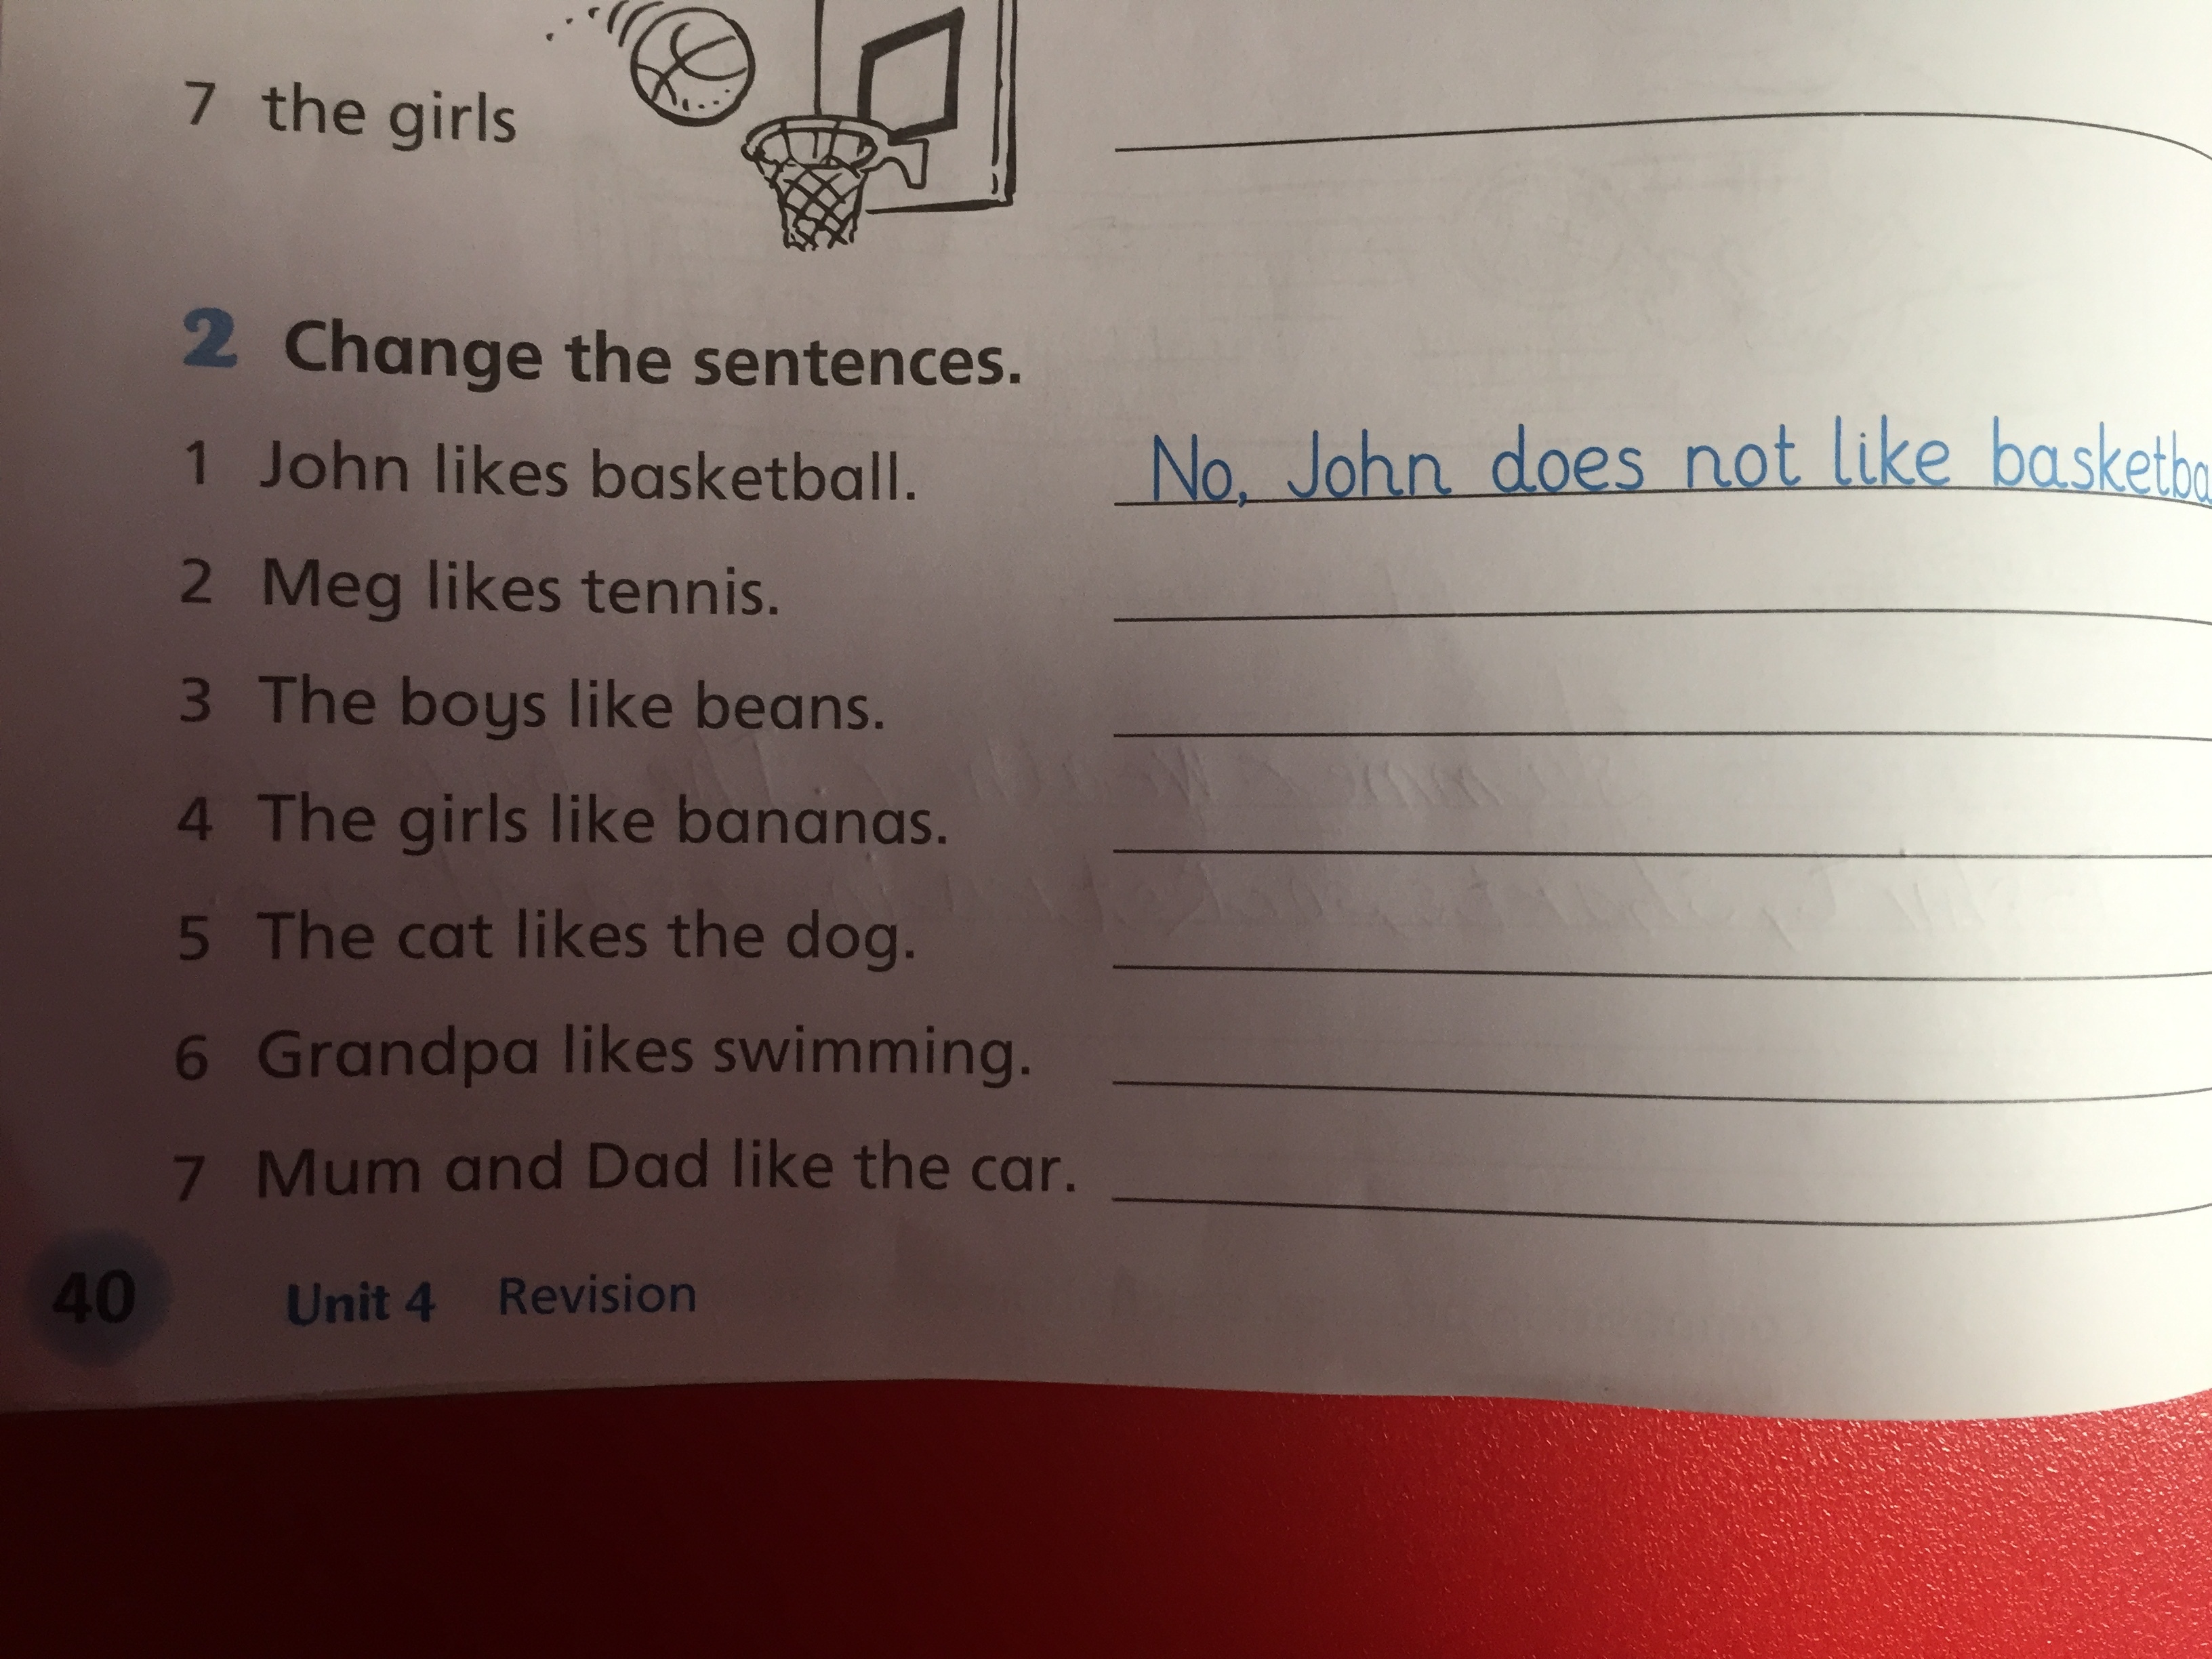 7 the girls
2 Change the sentences.
1 John likes basketball. No, John does not like basketba
2 Meg likes tennis.
3 The boys like beans.
4 The girls like bananas.
5 The cat likes the dog.
6 Grandpa likes swimming.
7 Mum and Dad like the car.
40 Unit 4 Revision